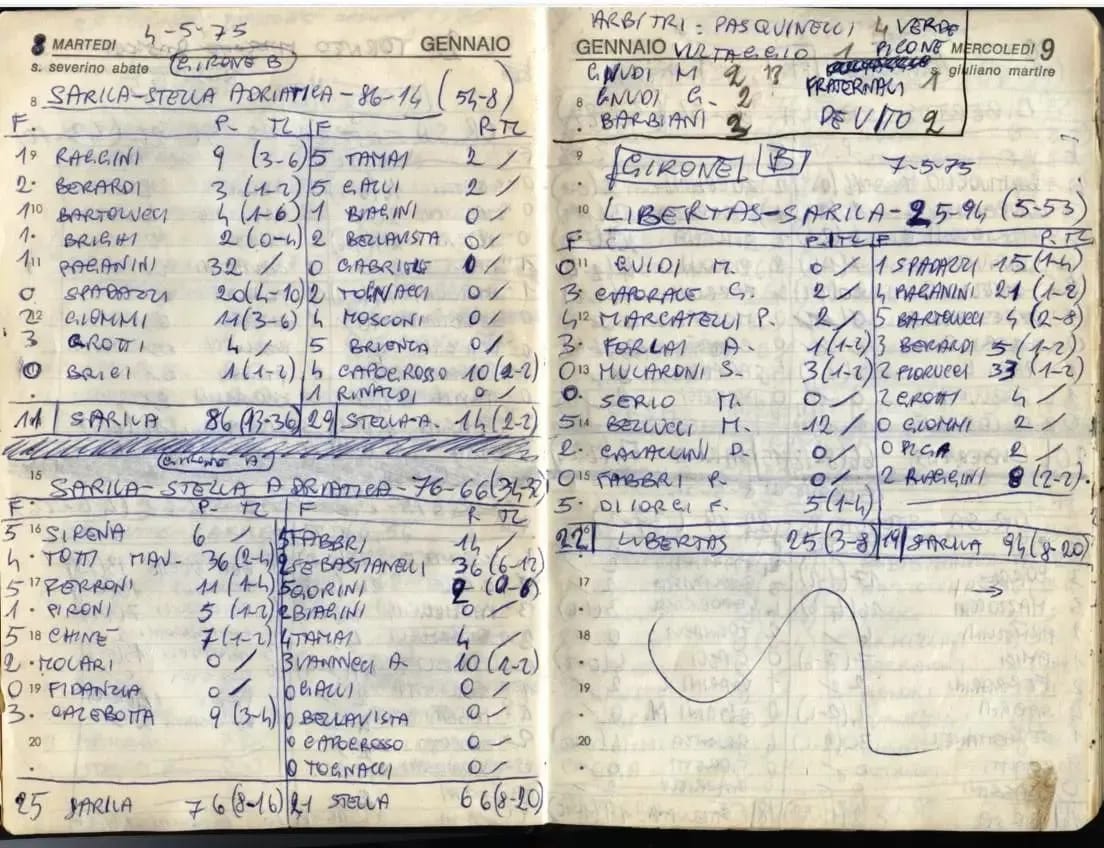 4-5-75
8 MARTEDI GENNAIO
s. severino abate GIRONE B
8 SARILA-STELLA ADRIATICA-86-14 (54-8)
F. P- TL F P-TL
1 9 RAGGINI 9 (3-6) 5 TAMAI 2 /
2. BERARDI 3 (1-2) 5 GALLI 2 /
1 10 BARTOLUCCI 4 (1-6) 1 BIAGINI 0 /
1. BRIGHI 2 (0-4) 2 BELLAVISTA 0 /
1 11 PAGANINI 32 / 0 GABRIELE 0 /
0 SPADAZZI 20 (4-10) 2 TOGNACCI 0 /
2 12 GIOMMI 11 (3-6) 4 MOSCONI 0 /
3 GROTTI 4 / 5 BRIENZA 0 /
0 BRICI 1 (1-2) 4 CAPOGROSSO 10 (2-2)
1 RINALDI 0 /
11 SARILA 86 (13-36) 29 STELLA-A. 14 (2-2)
GIRONE A
15 SARILA-STELLA ADRIATICA-76-66 (34-32)
F. P- TL F P TL
5 16 SIRENA 6 / 5 FABBRI 14 /
4. TOTTI MAN. 36 (2-4) 2 SEBASTIANELLI 36 (6-12)
5 17 FERRONI 11 (1-4) 5 GORINI 2 (0-6)
1. PIRONI 5 (1-2) 2 BIAGINI 0 /
5 18 CHINE 7 (1-2) 4 TAMAI 4 /
2. MOLARI 0 / 3 VANNUCCI A. 10 (2-2)
0 19 FIDANZIA 0 / 0 GALLI 0 /
3. GALEBOTTA 9 (3-4) 0 BELLAVISTA 0 /
20 0 CAPOGROSSO 0 /
0 TOGNACCI 0 /
25 SARILA 76 (8-16) 21 STELLA 66 (8-20)
ARBITRI: PASQUINELLI 4 VERDE
GENNAIO VULTAGGIO 1 PICONE MERCOLEDI 9
GNUDI M 2 s. giuliano martire
FRATERNALI 1
8 GNUDI G. 2
BARBIANI 2 DEVITO 2
9 GIRONE B 7-5-75
10 LIBERTAS-SARILA-25-94 (5-53)
F P. TL F P. TL
0 11 GUIDI M. 0 / 1 SPADAZZI 15 (1-4)
3. CAPORALE G. 2 / 4 PAGANINI 21 (1-2)
4 12 MARCATELLI P. 2 / 5 BARTOLUCCI 4 (2-8)
3. FORLAI A. 1 (1-2) 3 BERARDI 5 (1-2)
0 13 MULARONI S. 3 (1-2) 2 FIORUCCI 33 (1-2)
0. SERIO M. 0 / 2 GROTTI 4 /
5 14 BELLUCCI M. 12 / 0 GIOMMI 2 /
2. CAVALLINI D. 0 / 0 PIGA 2 /
0 15 FABBRI P. 0 / 2 RUGGINI 8 (2-2).
5. DI IORGI F. 5 (1-4)
22 LIBERTAS 25 (3-8) 19 SARILA 94 (8-20)
17
18
19
20